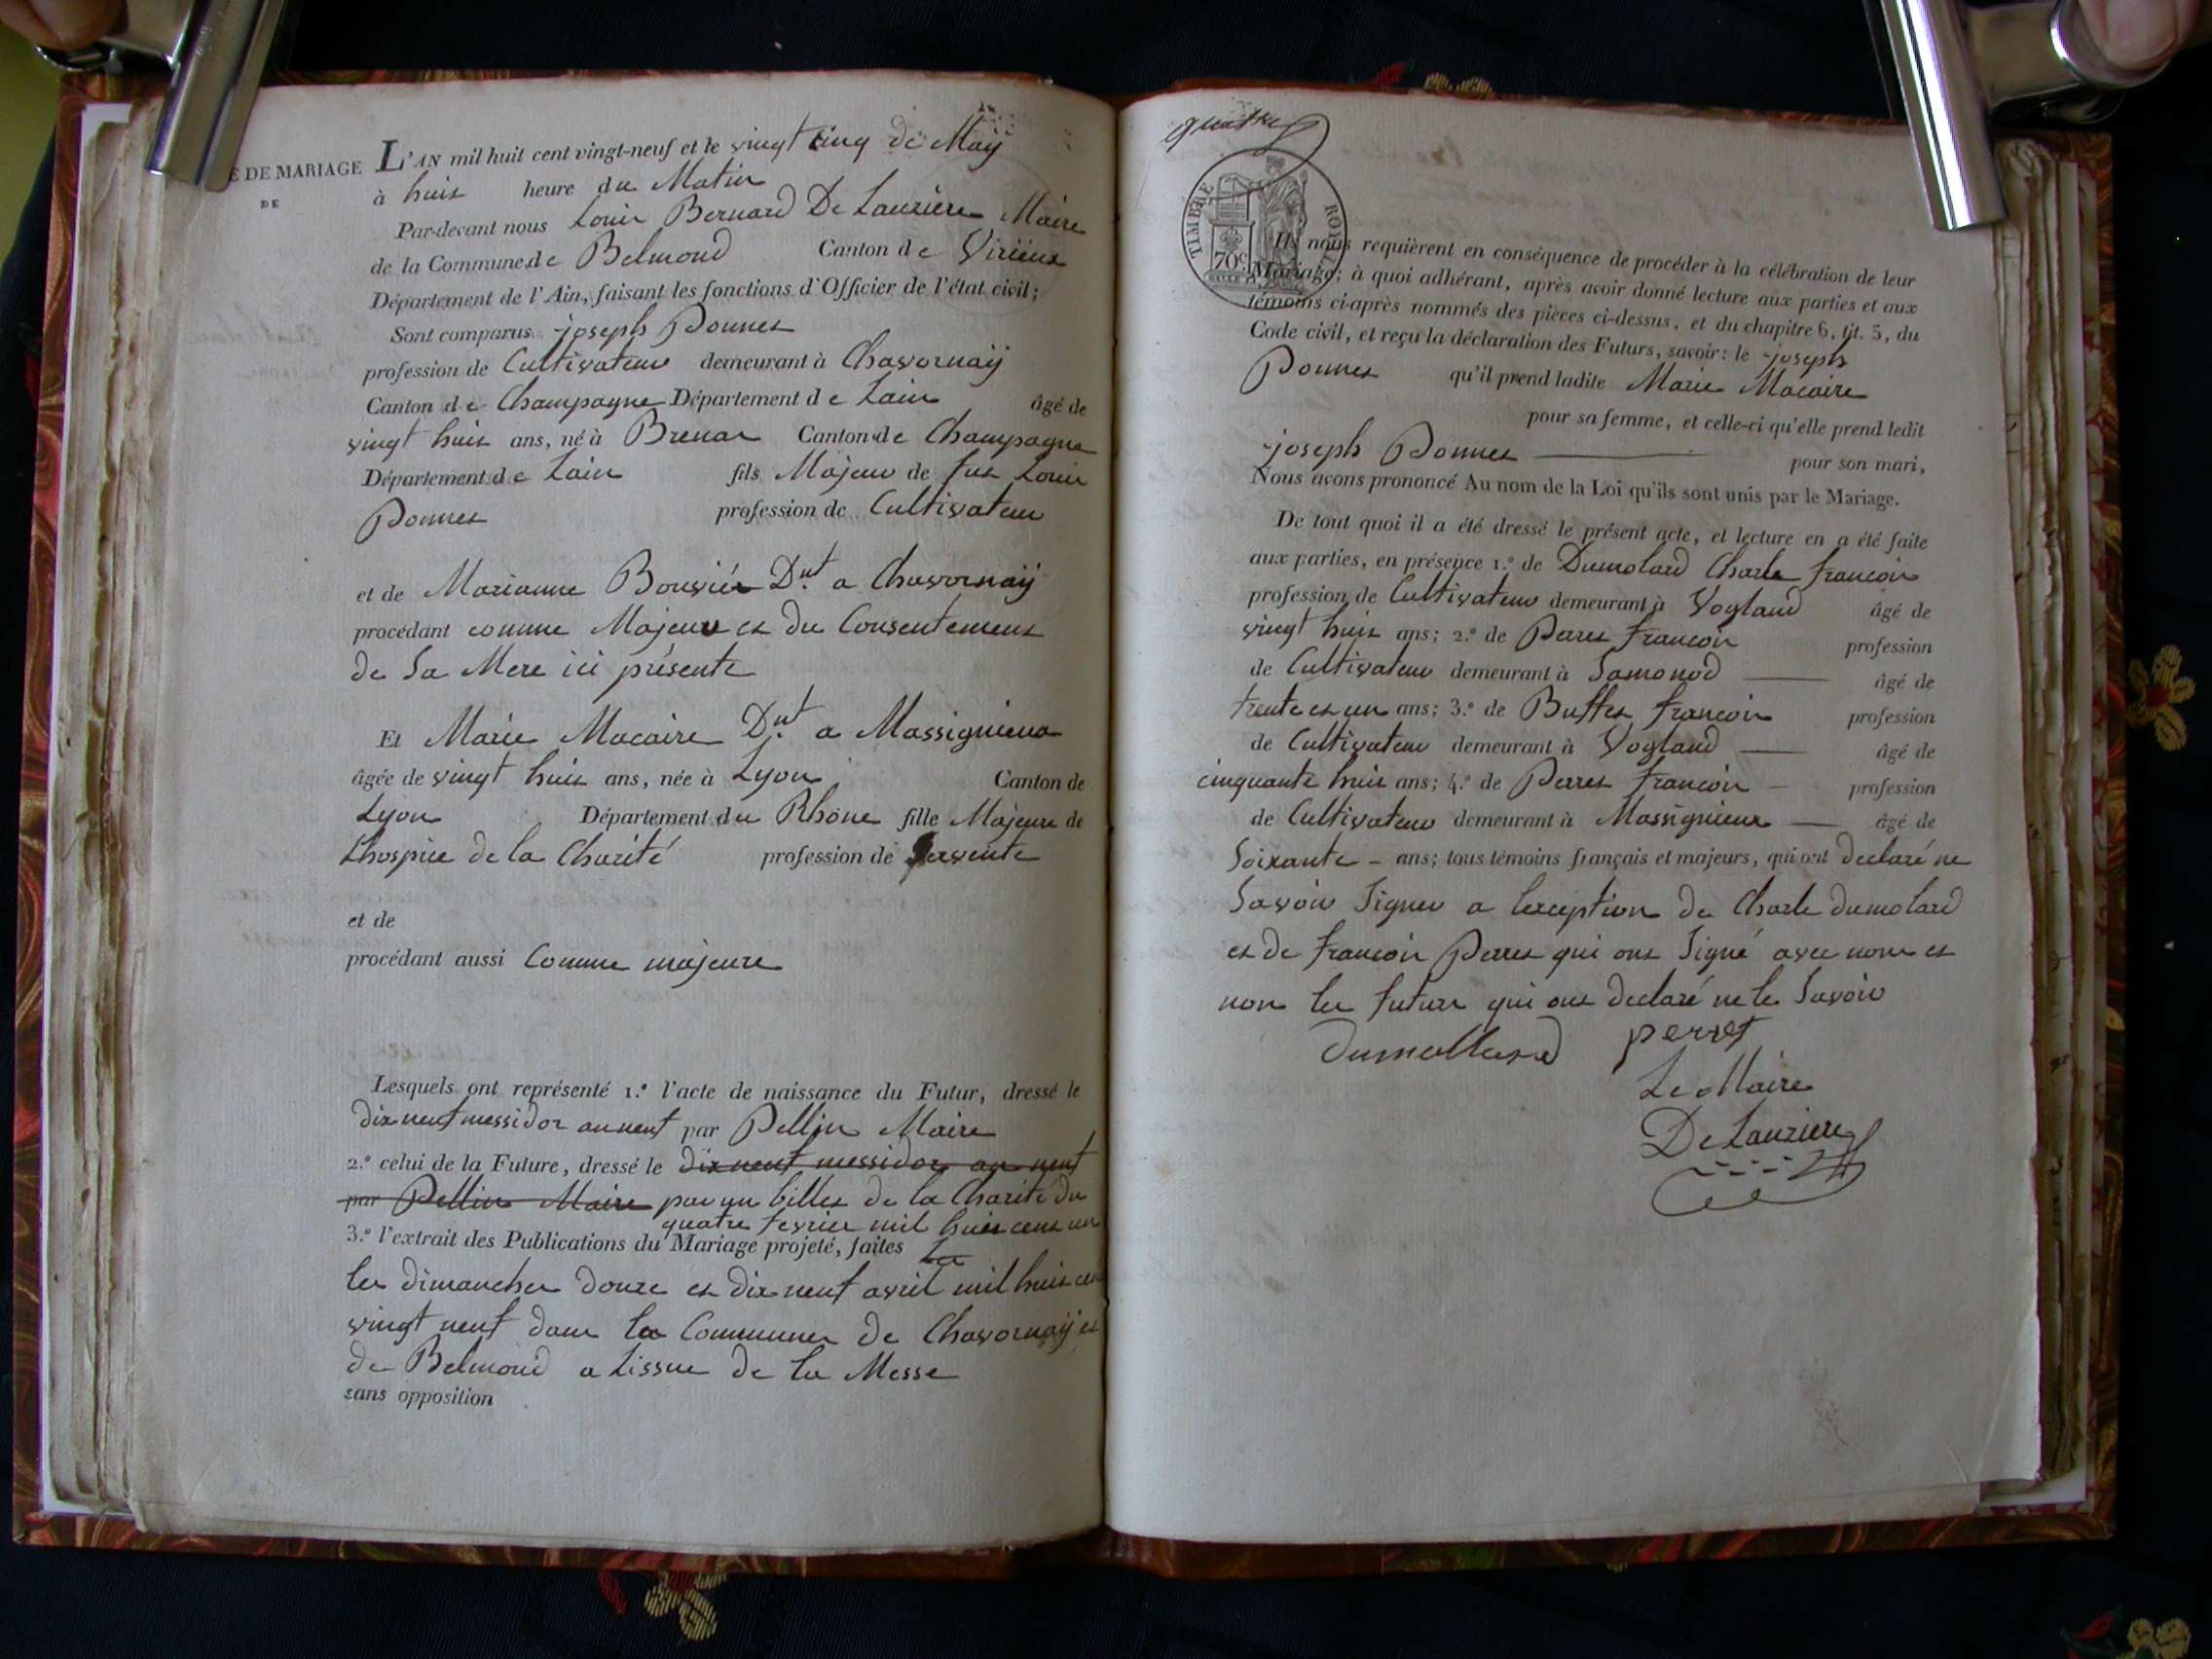 E DE MARIAGE
DE
L'AN mil huit cent vingt-neuf et le vingt cinq de Maÿ
à huit heure du Matin
Par-devant nous Louis Bernard De Lauziere Maire
de la Commune de Belmond Canton de Virieux
Département de l'Ain, faisant les fonctions d'Officier de l'état civil;
Sont comparus joseph Ponnet
profession de Cultivateur demeurant à Chavornaÿ
Canton de Champagne Département de Lain âgé de
vingt huit ans, né à Brenas Canton de Champagne
Département de Lain fils Majeur de fut Louis
Ponnet profession de Cultivateur
et de Marianne Bouvier Dnt a Chavornaÿ
procédant comme Majeur et du Consentement
de Sa Mere ici présente
Et Marie Macaire Dnt a Massignieux
âgée de vingt huit ans, née à Lyon Canton de
Lyon Département du Rhône fille Majeure de
Lhospice de la Charité profession de Servente
et de
procédant aussi Comme majeure
Lesquels ont représenté 1.º l'acte de naissance du Futur, dressé le
dix neuf messidor an neuf par Pellin Maire
2.º celui de la Future, dressé le dix neuf messidor an neuf
par Pellin Maire par un billet de la Charité du
quatre fevrier mil huit cent un
3.º l'extrait des Publications du Mariage projeté, faites
les dimanches douze et dix neuf avril mil huit cen
vingt neuf dans les Communes de Chavornaÿ et
de Belmond a Lissue de la Messe
sans opposition
quatre
TIMBRE ROYAL
70c
Ils nous requièrent en conséquence de procéder à la célébration de leur
Mariage; à quoi adhérant, après avoir donné lecture aux parties et aux
témoins ci-après nommés des pièces ci-dessus, et du chapitre 6, tit. 5, du
Code civil, et reçu la déclaration des Futurs, savoir: le joseph
Ponnet qu'il prend ladite Marie Macaire
pour sa femme, et celle-ci qu'elle prend ledit
joseph Ponnet pour son mari,
Nous avons prononcé Au nom de la Loi qu'ils sont unis par le Mariage.
De tout quoi il a été dressé le présent acte, et lecture en a été faite
aux parties, en présence 1.º de Dumolard Charle francois
profession de Cultivateur demeurant à Vogland âgé de
vingt huit ans; 2.º de Perret francois profession
de Cultivateur demeurant à Samonod âgé de
trente et un ans; 3.º de Buffet francois profession
de Cultivateur demeurant à Vogland âgé de
cinquante huit ans; 4.º de Perret francois profession
de Cultivateur demeurant à Massignieux âgé de
Soixante ans; tous témoins français et majeurs, qui ont declaré ne
Savoir Signer a lexception de Charle dumolard
et de francois Perret qui ont Signé avec nous et
non les futurs qui ont declaré ne le Savoir
dumollard perret
Le Maire
De Lauziere